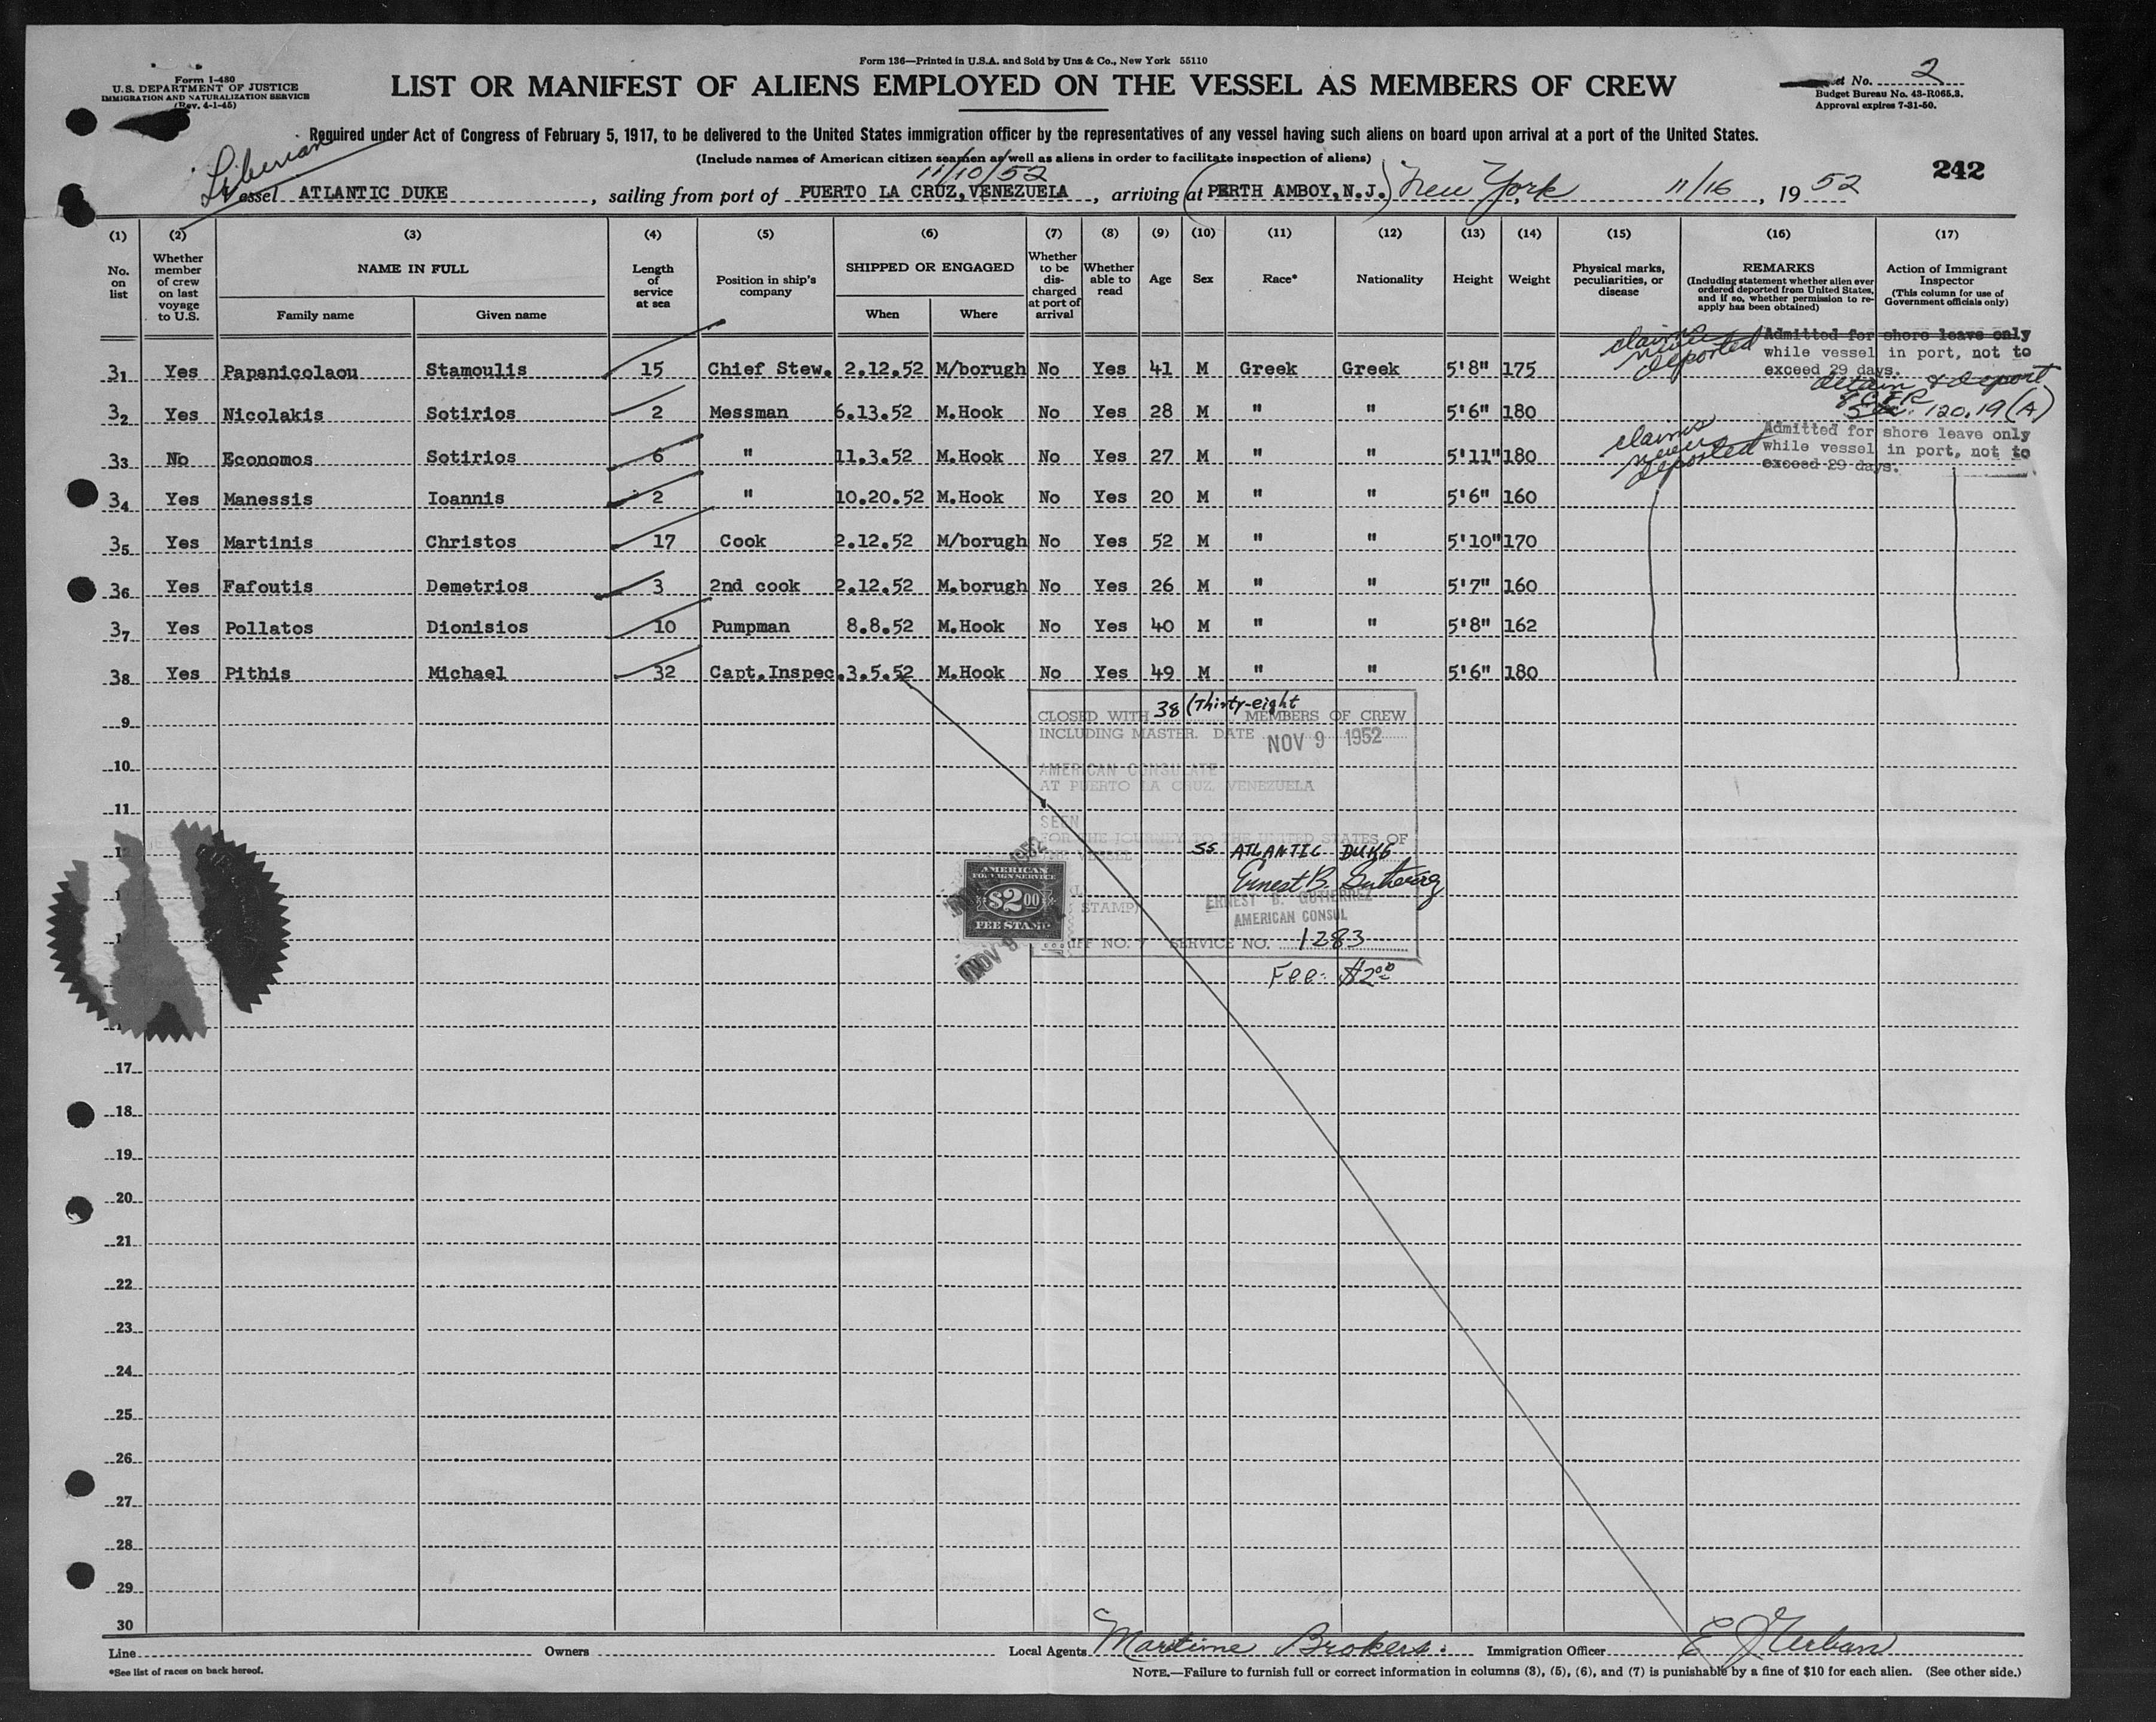 Form 136—Printed in U.S.A. and Sold by Unz & Co., New York 55110
Form I-480
U.S. DEPARTMENT OF JUSTICE
IMMIGRATION AND NATURALIZATION SERVICE
(Rev. 4-1-45)
LIST OR MANIFEST OF ALIENS EMPLOYED ON THE VESSEL AS MEMBERS OF CREW
No. 2
Budget Bureau No. 43-R065.3.
Approval expires 7-31-50.
Required under Act of Congress of February 5, 1917, to be delivered to the United States immigration officer by the representatives of any vessel having such aliens on board upon arrival at a port of the United States.
(Include names of American citizen seamen as well as aliens in order to facilitate inspection of aliens)
242
Liberian
11/10/52
Vessel ATLANTIC DUKE, sailing from port of PUERTO LA CRUZ, VENEZUELA, arriving (at PERTH AMBOY, N.J.) New York 11/16, 1952
(1) (2) (3) (4) (5) (6) (7) (8) (9) (10) (11) (12) (13) (14) (15) (16) (17)
No. on list
Whether member of crew on last voyage to U.S.
NAME IN FULL
Family name
Given name
Length of service at sea
Position in ship's company
SHIPPED OR ENGAGED
When
Where
Whether to be discharged at port of arrival
Whether able to read
Age
Sex
Race*
Nationality
Height
Weight
Physical marks, peculiarities, or disease
REMARKS
(Including statement whether alien ever ordered deported from United States, and if so, whether permission to re-apply has been obtained)
Action of Immigrant Inspector
(This column for use of Government officials only)
31 Yes Papanicolaou Stamoulis 15 Chief Stew. 2.12.52 M/borugh No Yes 41 M Greek Greek 5'8" 175
claims never deported
Admitted for shore leave only
while vessel in port, not to
exceed 29 days.
32 Yes Nicolakis Sotirios 2 Messman 6.13.52 M.Hook No Yes 28 M " " 5'6" 180
detain & deport
8 CFR
Sec. 120.19 (A)
33 No Economos Sotirios 6 " 11.3.52 M.Hook No Yes 27 M " " 5'11" 180
claims never deported
Admitted for shore leave only
while vessel in port, not to
exceed 29 days.
34 Yes Manessis Ioannis 2 " 10.20.52 M.Hook No Yes 20 M " " 5'6" 160
35 Yes Martinis Christos 17 Cook 2.12.52 M/borugh No Yes 52 M " " 5'10" 170
36 Yes Fafoutis Demetrios 3 2nd cook 2.12.52 M.borugh No Yes 26 M " " 5'7" 160
37 Yes Pollatos Dionisios 10 Pumpman 8.8.52 M.Hook No Yes 40 M " " 5'8" 162
38 Yes Pithis Michael 32 Capt.Inspec. 3.5.52 M.Hook No Yes 49 M " " 5'6" 180
9
CLOSED WITH 38 (Thirty-eight MEMBERS OF CREW
INCLUDING MASTER. DATE NOV 9 1952
10
AMERICAN CONSULATE
AT PUERTO LA CRUZ, VENEZUELA
11
SEEN
FOR THE JOURNEY TO THE UNITED STATES OF
VESSEL SS ATLANTIC DUKE
Ernest B. Gutierrez
ERNEST B. GUTIERREZ
AMERICAN CONSUL
STAMP)
AMERICAN
FOREIGN SERVICE
$2.00
FEE STAMP
NOV 9
1952
NO. 7 SERVICE NO. 1283
Fee: $2.00
17
18
19
20
21
22
23
24
25
26
27
28
29
30
Line
Owners
Local Agents Maritime Brokers.
Immigration Officer E J Urban
*See list of races on back hereof.
NOTE.—Failure to furnish full or correct information in columns (3), (5), (6), and (7) is punishable by a fine of $10 for each alien. (See other side.)